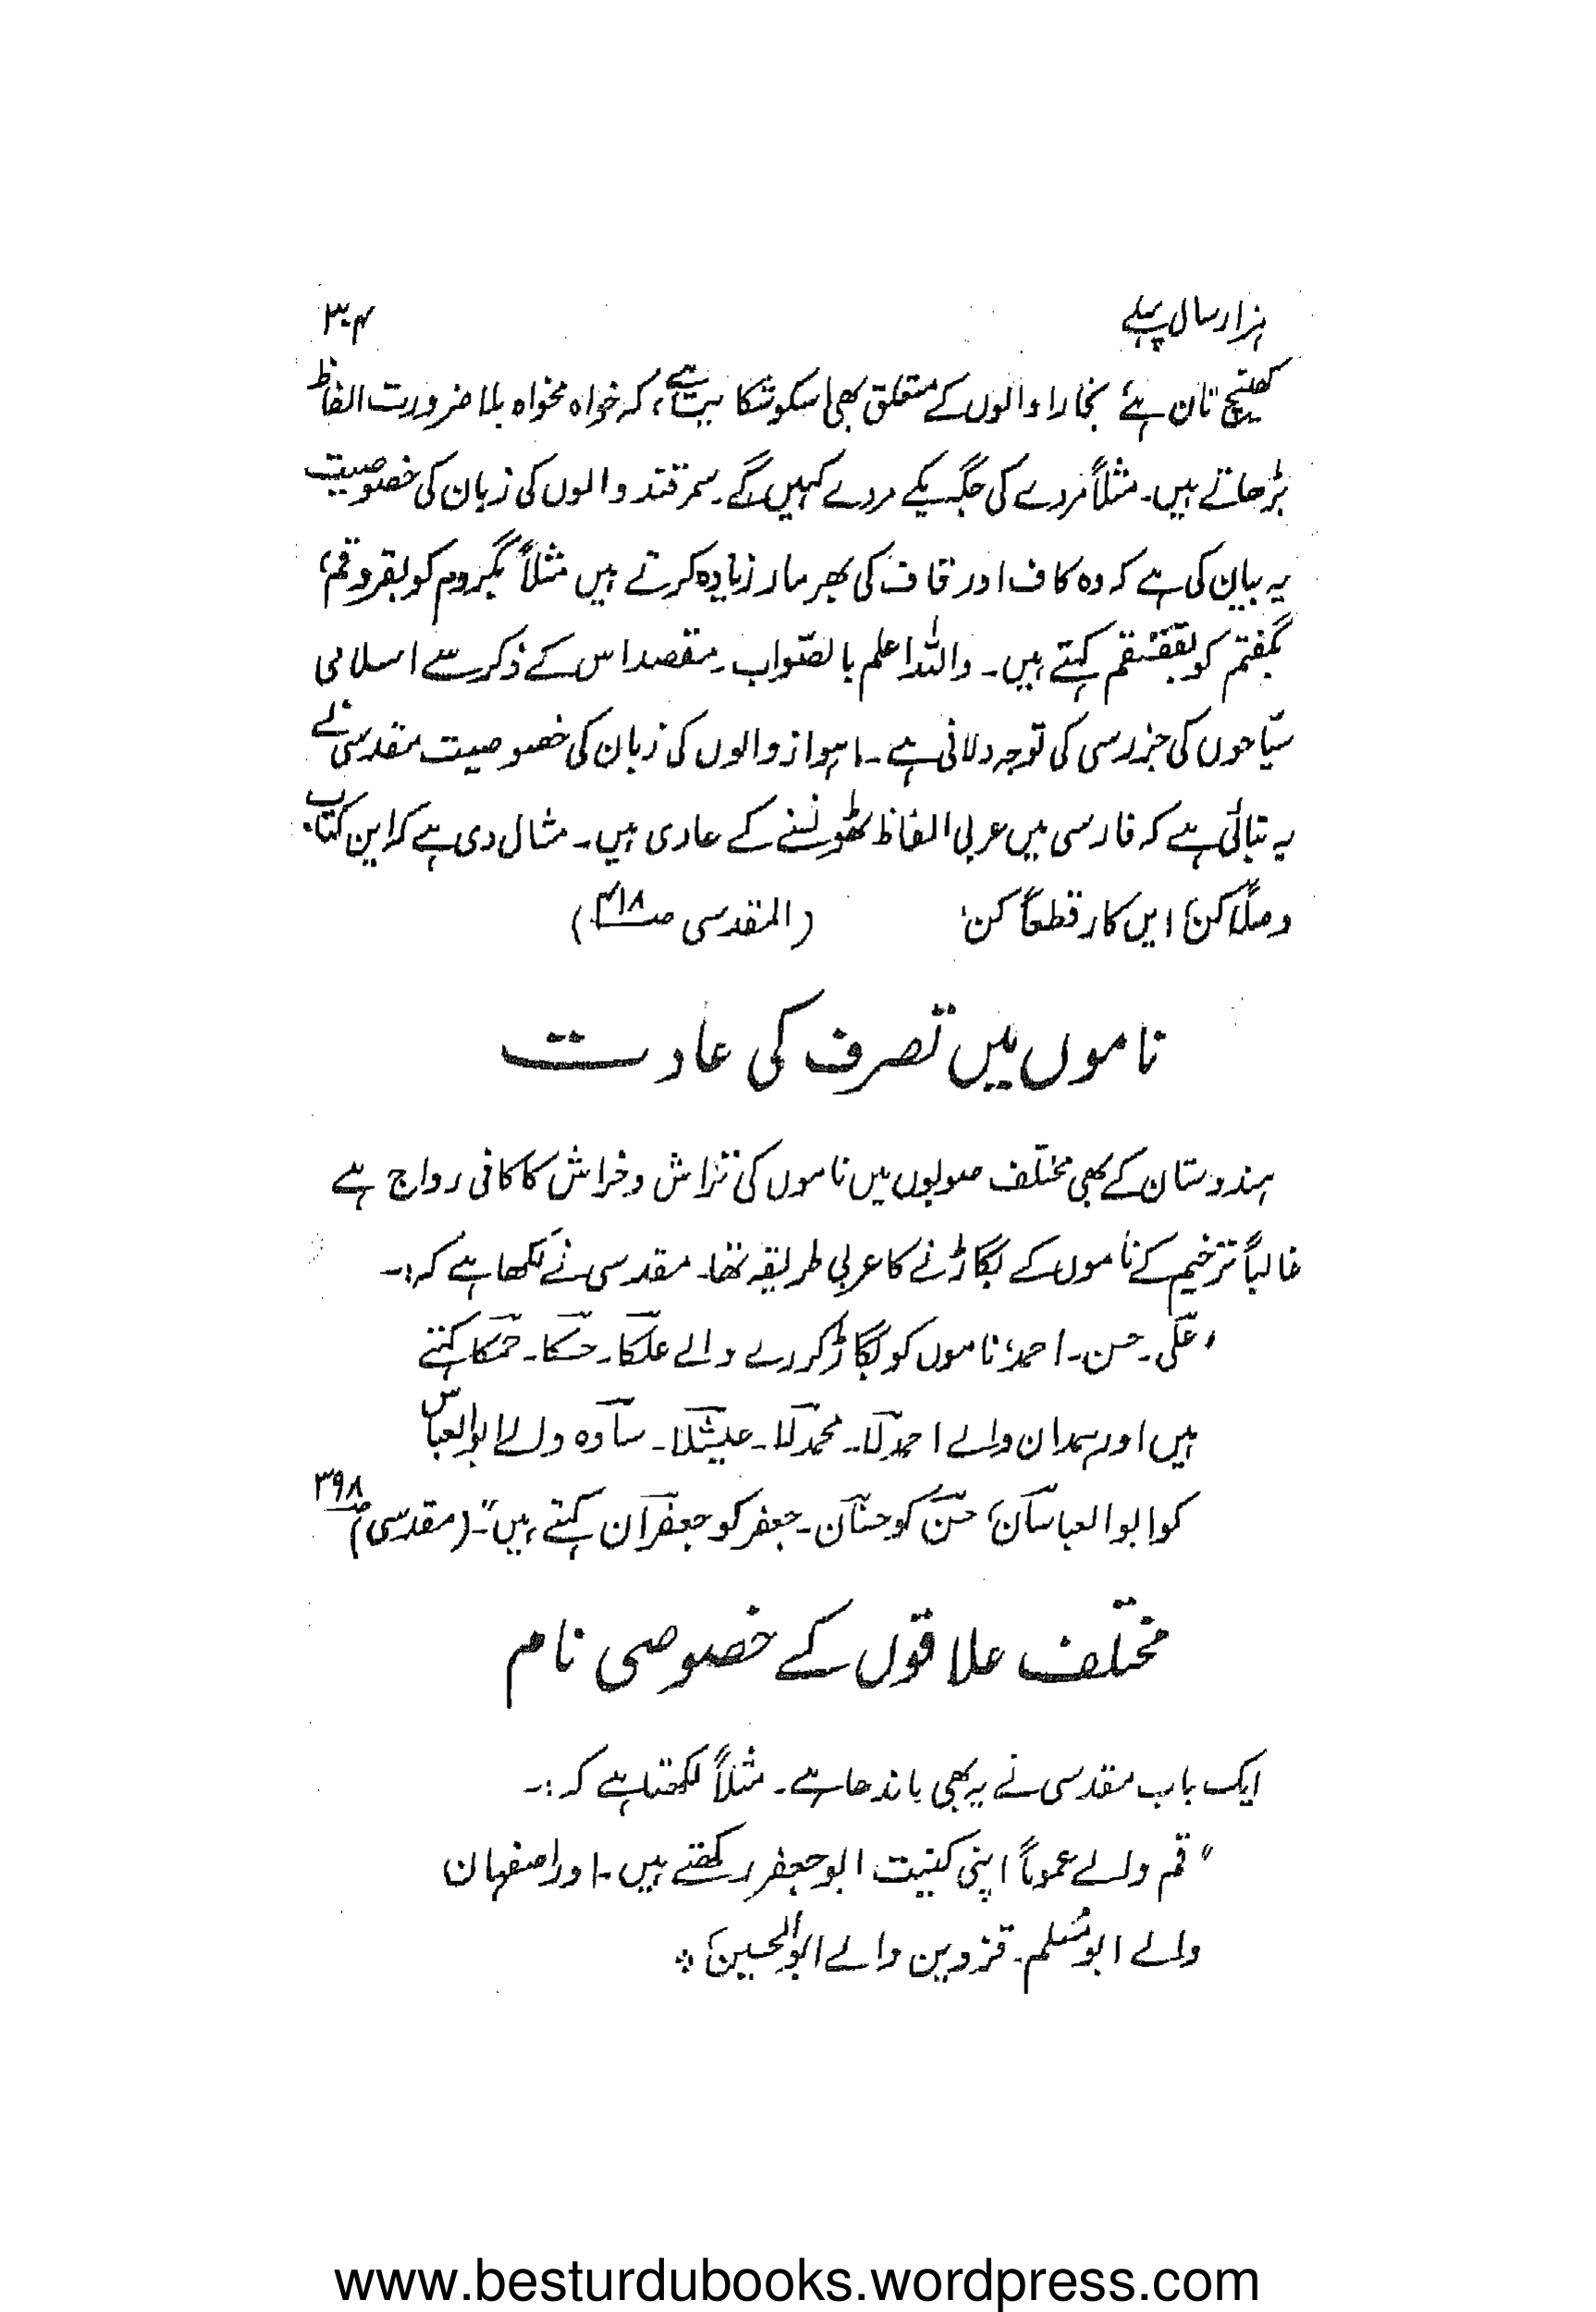 ہزار سال پہلے ۳۰۴
کھینچ تان ہے۔ بخارا والوں کے متعلق بھی اسکو شکایت ہے، کہ خواہ مخواہ بلا ضرورت الفاظ
بڑھاتے ہیں۔ مثلاً مردے کی جگہ یکے مردے کہیں گے۔ سمرقند والوں کی زبان کی خصوصیت
یہ بیان کی ہے کہ وہ کاف اور قاف کی بھرمار زیادہ کرتے ہیں مثلاً بگردم کو بقردقم،
بگفتم کو بقفتقم کہتے ہیں۔ واللہ اعلم بالصّواب۔ مقصد اس کے ذکر سے اسلامی
سیّاحوں کی جزرسی کی توجہ دلانی ہے۔ اہواز والوں کی زبان کی خصوصیت مقدسی نے
یہ بتائی ہے کہ فارسی میں عربی الفاظ ٹھونسنے کے عادی ہیں۔ مثال دی ہے کہ این کتاب
وصلاً کن، این کار قطعاً کن، (المقدسی صـ ۴۱۸)
ناموں میں تصرف کی عادت
ہندوستان کے بھی مختلف صوبوں میں ناموں کی تراش و خراش کا کافی رواج ہے
غالباً ترخیم کے ناموں کے بگاڑنے کا عربی طریقہ تھا۔ مقدسی نے لکھا ہے کہ:۔
،علی۔ حسن۔ احمد، ناموں کو بگاڑ کر رے والے علکا۔ حسکا۔ حمکا کہتے
ہیں اور ہمدان والے احمدلا۔ محمدلا۔ عیشلا۔ ساوہ والے ابوالعباس
کو ابوالعباسان، حسن کو حسنان۔ جعفر کو جعفران کہتے ہیں"۔ (مقدسی) صـ ۳۹۸
مختلف علاقوں کے خصوصی نام
ایک باب مقدسی نے یہ بھی باندھا ہے۔ مثلاً لکھتا ہے کہ:۔
"قم والے عموماً اپنی کنیت ابو جعفر رکھتے ہیں۔ اور اصفہان
والے ابومُسلم۔ قزوین والے ابوالحسین،
www.besturdubooks.wordpress.com